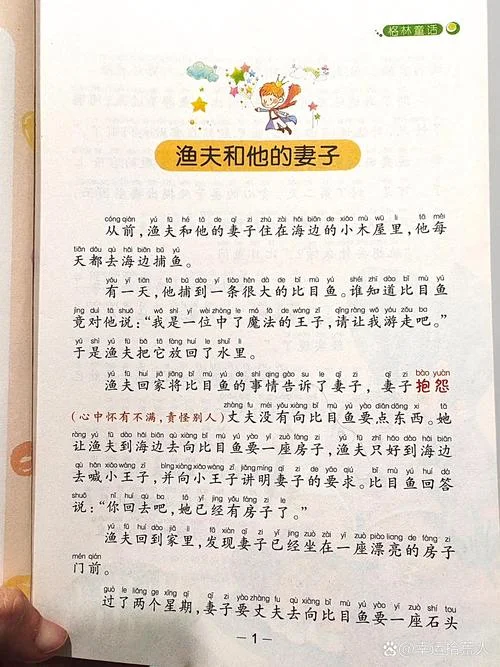 格林童话
渔夫和他的妻子
cóng qián yú fū hé tā de qī zi zhù zài hǎi biān de xiǎo mù wū li tā měi
从前，渔夫和他的妻子住在海边的小木屋里，他每
tiān dōu qù hǎi biān bǔ yú
天都去海边捕鱼。
yǒu yì tiān tā bǔ dào yì tiáo hěn dà de bǐ mù yú shéi zhī dào bǐ mù yú
有一天，他捕到一条很大的比目鱼。谁知道比目鱼
jìng duì tā shuō wǒ shì yí wèi zhòng le mó fǎ de wáng zǐ qǐng ràng wǒ yóu zǒu ba
竟对他说：“我是一位中了魔法的王子，请让我游走吧。”
yú shì yú fū bǎ tā fàng huí le shuǐ li
于是渔夫把它放回了水里。
yú fū huí jiā jiāng bǐ mù yú de shì qing gào su le qī zi qī zi bào yuàn
渔夫回家将比目鱼的事情告诉了妻子，妻子抱怨
zhàng fu méi yǒu xiàng bǐ mù yú yào diǎn dōng xi tā
(心中怀有不满，责怪别人)丈夫没有向比目鱼要点东西。她
ràng yú fū dào hǎi biān qù xiàng bǐ mù yú yào yí zuò fáng zi yú fū zhǐ hǎo dào hǎi biān
让渔夫到海边去向比目鱼要一座房子，渔夫只好到海边
qù hǎn xiǎo wáng zǐ bìng xiàng xiǎo wáng zǐ jiǎng míng qī zi de yāo qiú bǐ mù yú huí dá
去喊小王子，并向小王子讲明妻子的要求。比目鱼回答
shuō nǐ huí qù ba tā yǐ jīng yǒu fáng zi le
说：“你回去吧，她已经有房子了。”
yú fū huí dào jiā li fā xiàn qī zi yǐ jīng zuò zài yí zuò piào liang de fáng zi
渔夫回到家里，发现妻子已经坐在一座漂亮的房子
mén qián
门前。
guò le liǎng gè xīng qī qī zi yào zhàng fu qù xiàng bǐ mù yú yào yí zuò shí tou
过了两个星期，妻子要丈夫去向比目鱼要一座石头
1
@幸运拾荒人